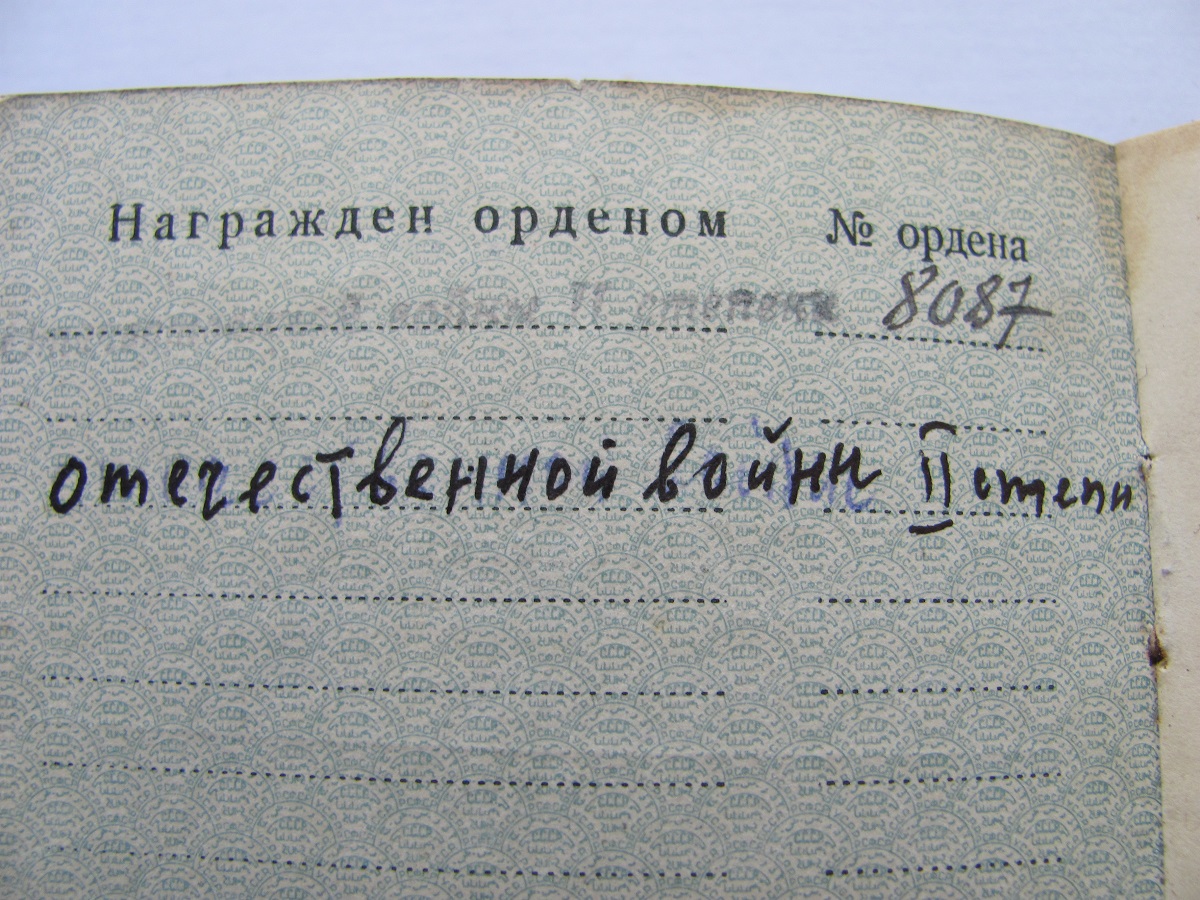 Награжден орденом № ордена
войны II степени 8087
отечественной войны II степени